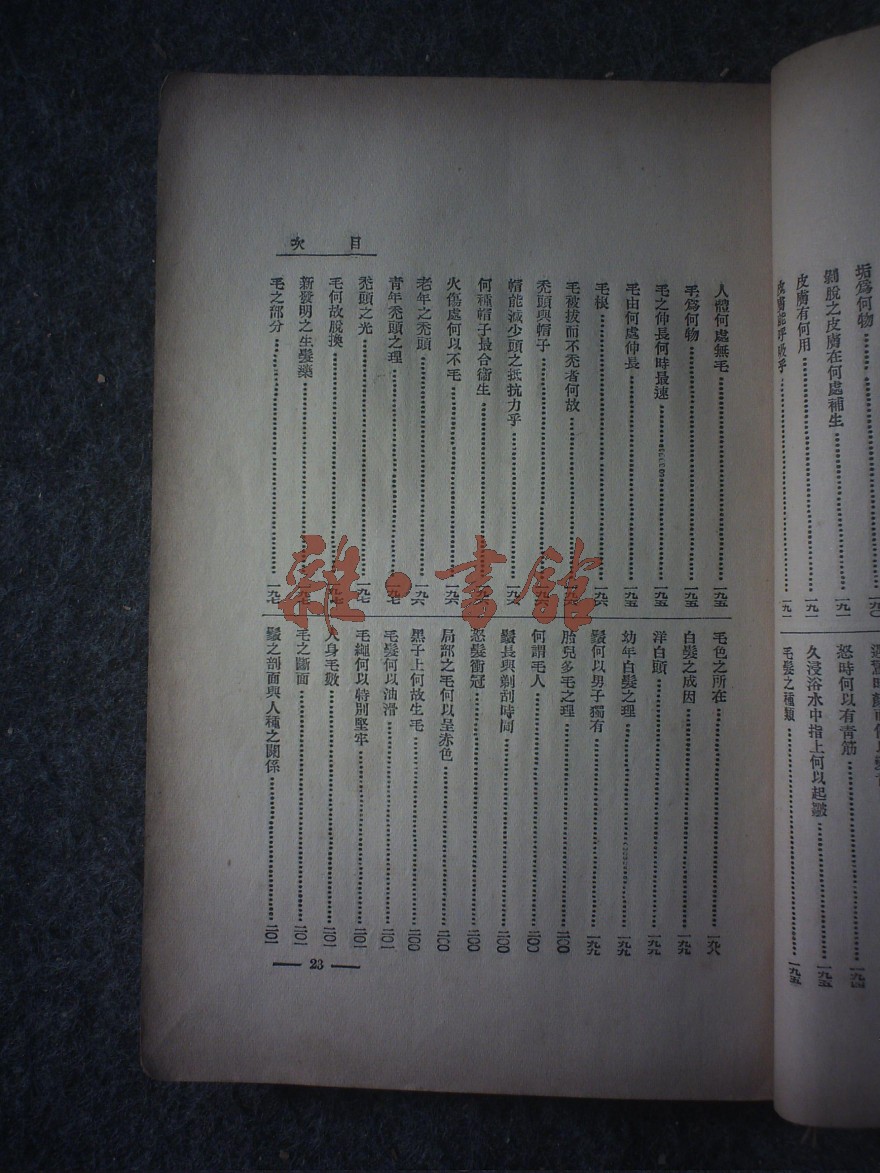 垢爲何物………一九〇
剝脫之皮膚在何處補生………一九一
皮膚有何用………一九一
皮膚能呼吸乎………一九一
怒時何以有靑筋………一九四
久浸浴水中指上何以起皺………一九五
毛髮之種類………一九五
目次
人體何處無毛………一九五
毛爲何物………一九五
毛之伸長何時最速………一九五
毛由何處伸長………一九五
毛根………一九六
毛被拔而不禿者何故………一九六
禿頭與帽子………一九六
帽能減少頭之抵抗力乎………一九六
何種帽子最合衞生………一九六
火傷處何以不毛………一九六
老年之禿頭………一九六
靑年禿頭之理………一九七
禿頭之光………一九七
毛何故脫換………一九七
新發明之生髮藥………一九七
毛之部分………一九七
毛色之所在………一九八
白髮之成因………一九九
洋白頭………一九九
幼年白髮之理………一九九
鬚何以男子獨有………一九九
胎兒多毛之理………二〇〇
何謂毛人………二〇〇
鬚長與剃刮時間………二〇〇
怒髮衝冠………二〇〇
局部之毛何以呈赤色………二〇〇
黑子上何故生毛………二〇〇
毛髮何以油滑………二〇一
毛繩何以特別堅牢………二〇一
人身毛數………二〇一
毛之斷面………二〇一
鬚之剖面與人種之關係………二〇一
— 23 —
雜·書館